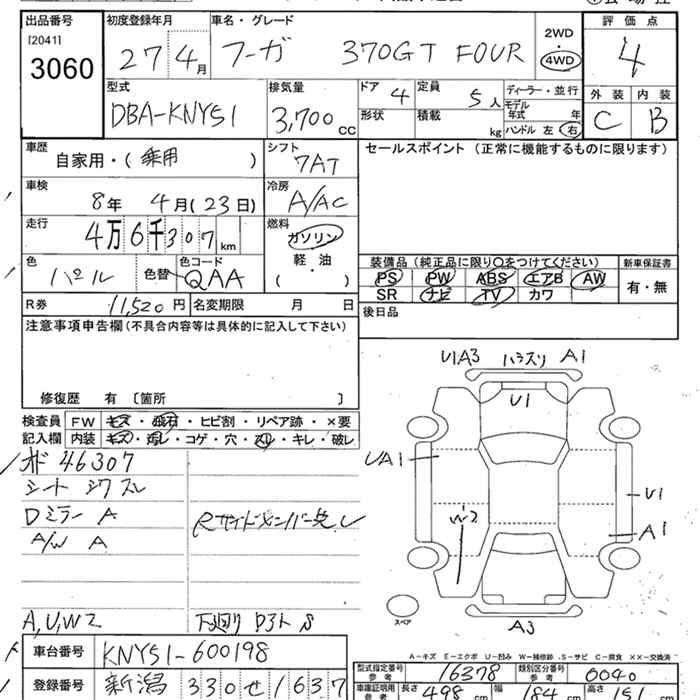 出品番号 初度登録年月 車名・グレード 評価点
[2041] 3060 27年 4月 フーガ 370GT FOUR 2WD 4WD 4
型式 排気量 ドア 4 定員 5人 ディーラー・並行 外装 内装
DBA-KNY51 3,700cc 形状 積載 kg モデル年式 年 ハンドル 左 右 C B
車歴 シフト セールスポイント (正常に機能するものに限ります)
自家用・( 乗用 ) 7AT
車検 冷房
8年 4月(23日) A/AC
走行 燃料
4万6千307km ガソリン
色 色替 色コード 軽・油 装備品 (純正品に限り○をつけてください) 新車保証書
パール QAA ( ) PS PW ABS エアB AW 有・無
SR ナビ TV カワ
R券 11,520円 名変期限 月 日 後日品
注意事項申告欄(不具合内容等は具体的に記入して下さい)
修復歴 有 〔箇所 〕
検査員 FW キズ・飛石・ヒビ割・リペア跡・×要
記入欄 内装 キズ・汚レ・コゲ・穴・スレ・キレ・破レ
オド 46307
シート シワ スレ
Dミラー A
A/W A
A,U,W2
UA3 ハラスリ A1
U1
UA1
U1
W2
A1
A3
スペア
A-キズ E-エクボ U-凹み W-補修跡 S-サビ C-腐食 XX-交換済
車台番号 KNY51-600198
登録番号 新潟 330 せ 1637
型式指定番号 参考 16378 類別区分番号 参考 0040
車庫証明用 参考 長さ 498cm 幅 184cm 高さ 151cm